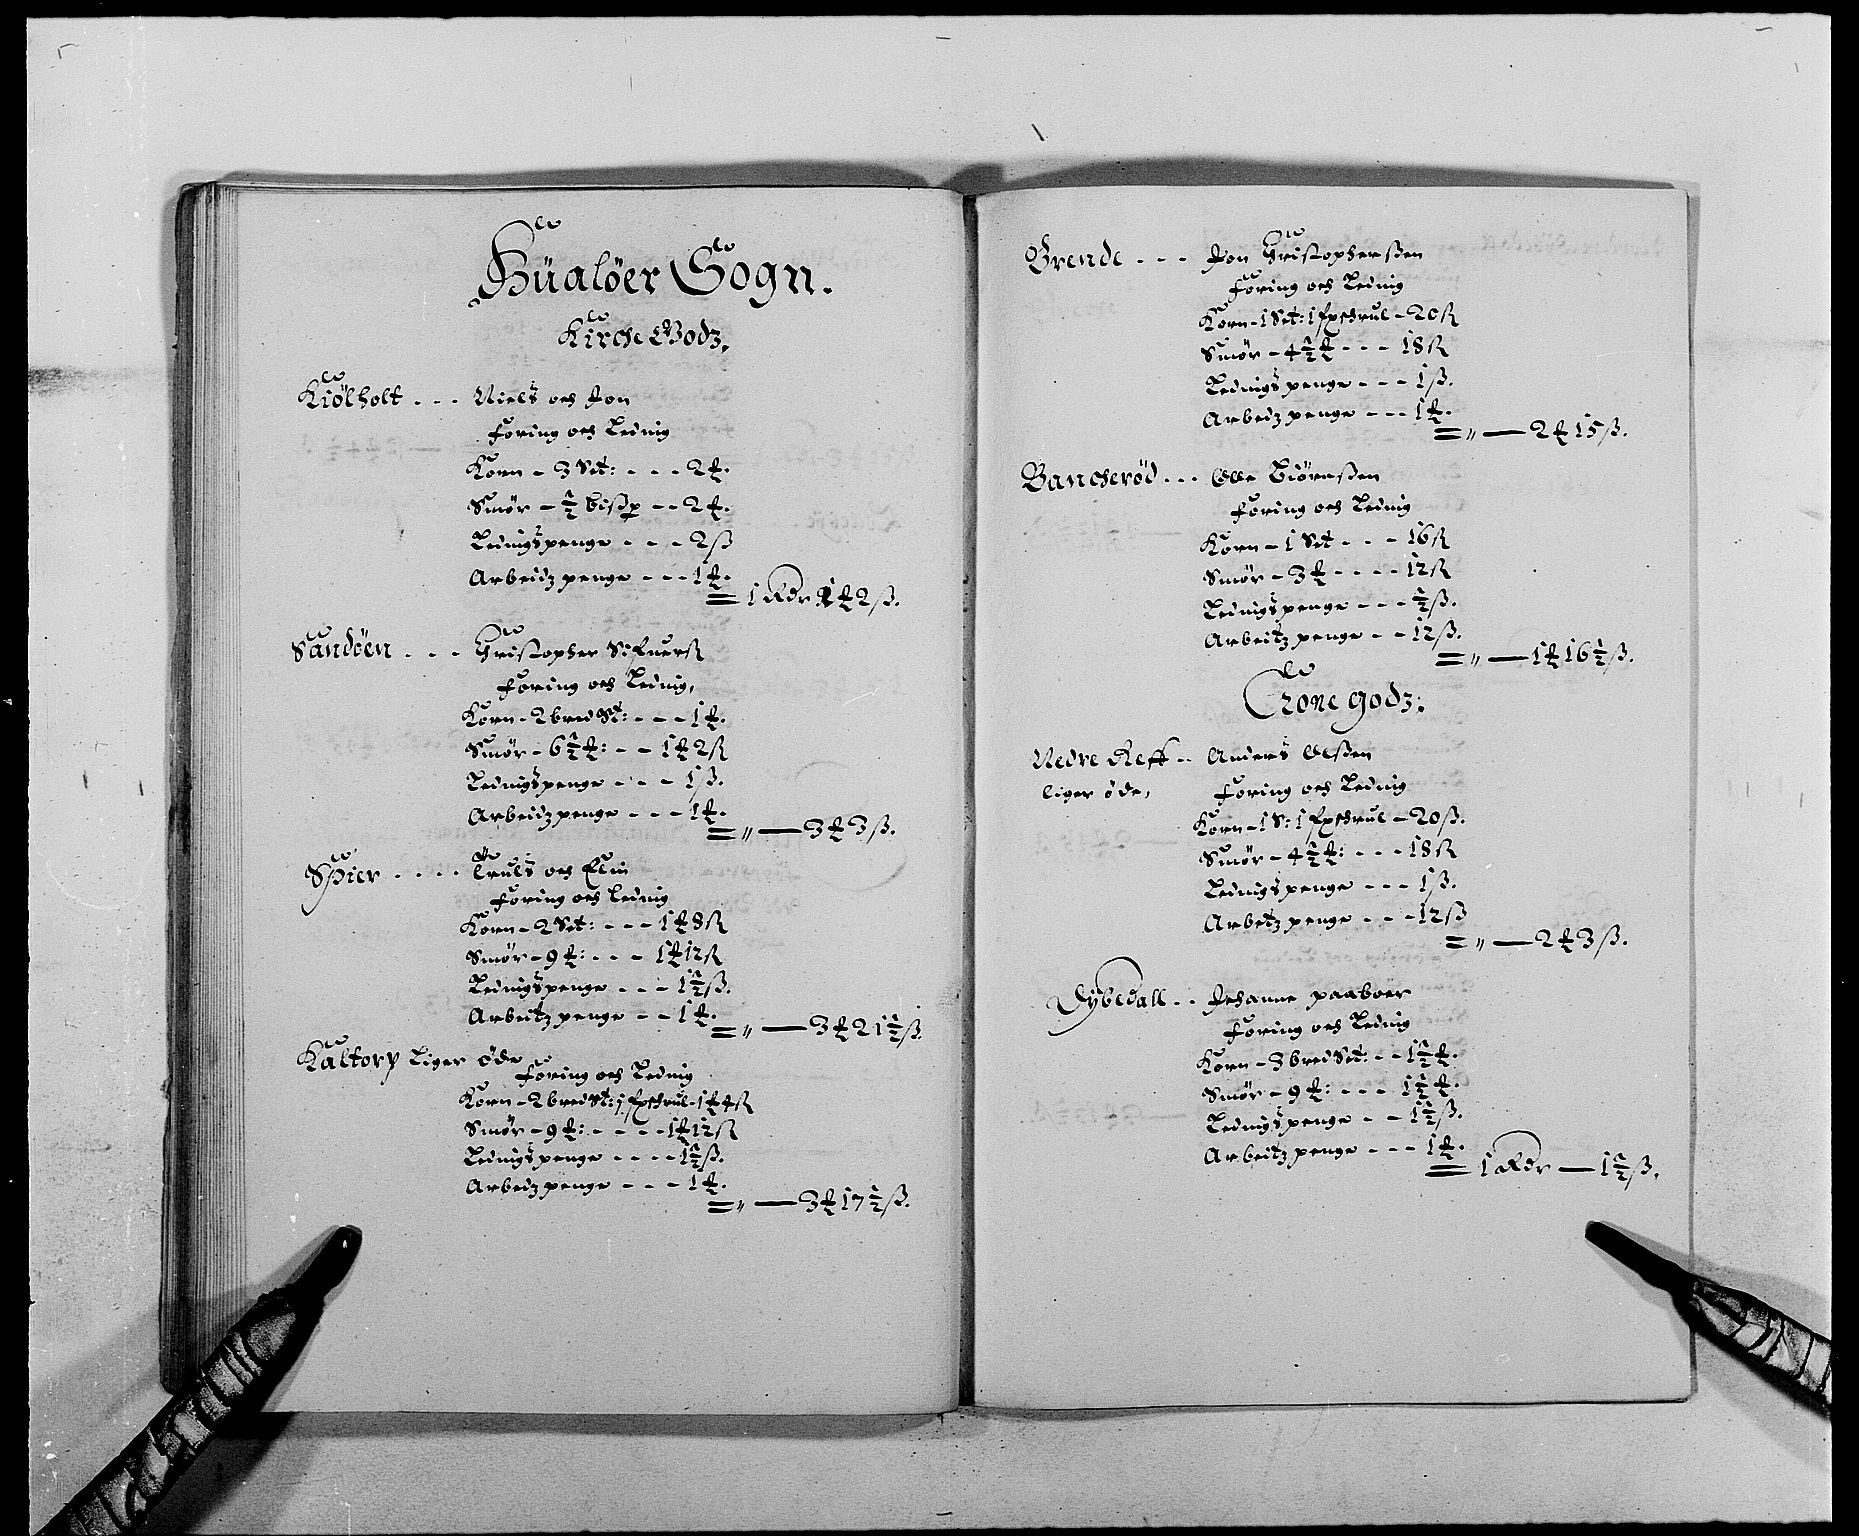 Hüalöer Sogn.
Kirche Godz.
Kiölholt - - - Niels och Jon
Foring och Leding
Korn - 3 Set: - - - 2 ₰.
Smör - ½ bißp - - 2 ₰.
Ledingspenge - - - 2 ß
Arbeidz penge - - - 1 ₰.
= 1 Rdr 1 ₰ 2 ß.
Sandöen - - - Christopher
Foring och Leding,
Korn - 2 bred St: - - - 1 ₰.
Smör - 6½ ₰: - - 1 ₰ 2 ß
Ledingspenge - - - 1 ß.
Arbeidz penge - - - 1 ₰.
= „ — 3 ₰ 3 ß.
Spier - - - - Truls och Elin
Foring och Leding
Korn - 2 Set: - - - 1 ₰ 8 ß
Smör - 9 ₰: - - - 1 ₰ 12 ß
Ledingspenge - - - 1½ ß.
Arbeitz penge - - 1 ₰.
= „ — 3 ₰ 21½ ß.
Kaltorp liger öde
Foring och Leding
Korn - 2 bred St: 1 - 1 ₰ 4 ß
Smör - 9 ₰: - - - - 1 ₰ 12 ß
Ledingspenge - - - - 1½ ß.
Arbeidz penge - - - 1 ₰.
= „ — 3 ₰ 17½ ß.
Grende - - - Jon Christopherßen
Foring och Leding
Korn - 1 Set: 1 - 20 ß
Smör - 4½ ₰ - - - 18 ß
Ledingspenge - - - 1 ß.
Arbeidz penge - - - 1 ₰.
= „ — 2 ₰ 15 ß.
Bancheröd - - - Olle Biörnßen
Foring och Leding
Korn - 1 Set - - - 16 ß
Smör - 3 ₰ - - - - 12 ß
Ledingspenge - - - ½ ß.
Arbeitz penge - - 12 ß.
= „ — 1 ₰ 16½ ß.
Crone godz:
Nedre Reff - - Anders Olßen
liger öde, Foring och Leding
Korn - 1 S: 1 - 20 ß.
Smör - 4½ ₰: - - - 18 ß
Ledingspenge - - - 1 ß.
Arbeitz penge - - - 12 ß
= „ — 2 ₰ 3 ß.
Dybedall - - Johanne paaboer
Foring och Leding
Korn - 3 bred Set: - - 1½ ₰.
Smör - 9 ₰: - - - 1½ ₰.
Ledingspenge - - 1½ ß.
Arbeitz penge - - - 1 ₰.
= 1 Rdr — 1½ ß.